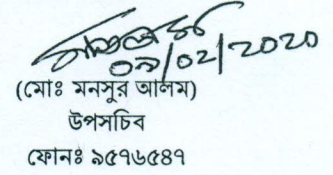 ০৯/০২/২০২০
(মোঃ মনসুর আলম)
উপসচিব
ফোনঃ ৯৫৭৬৫৪৭